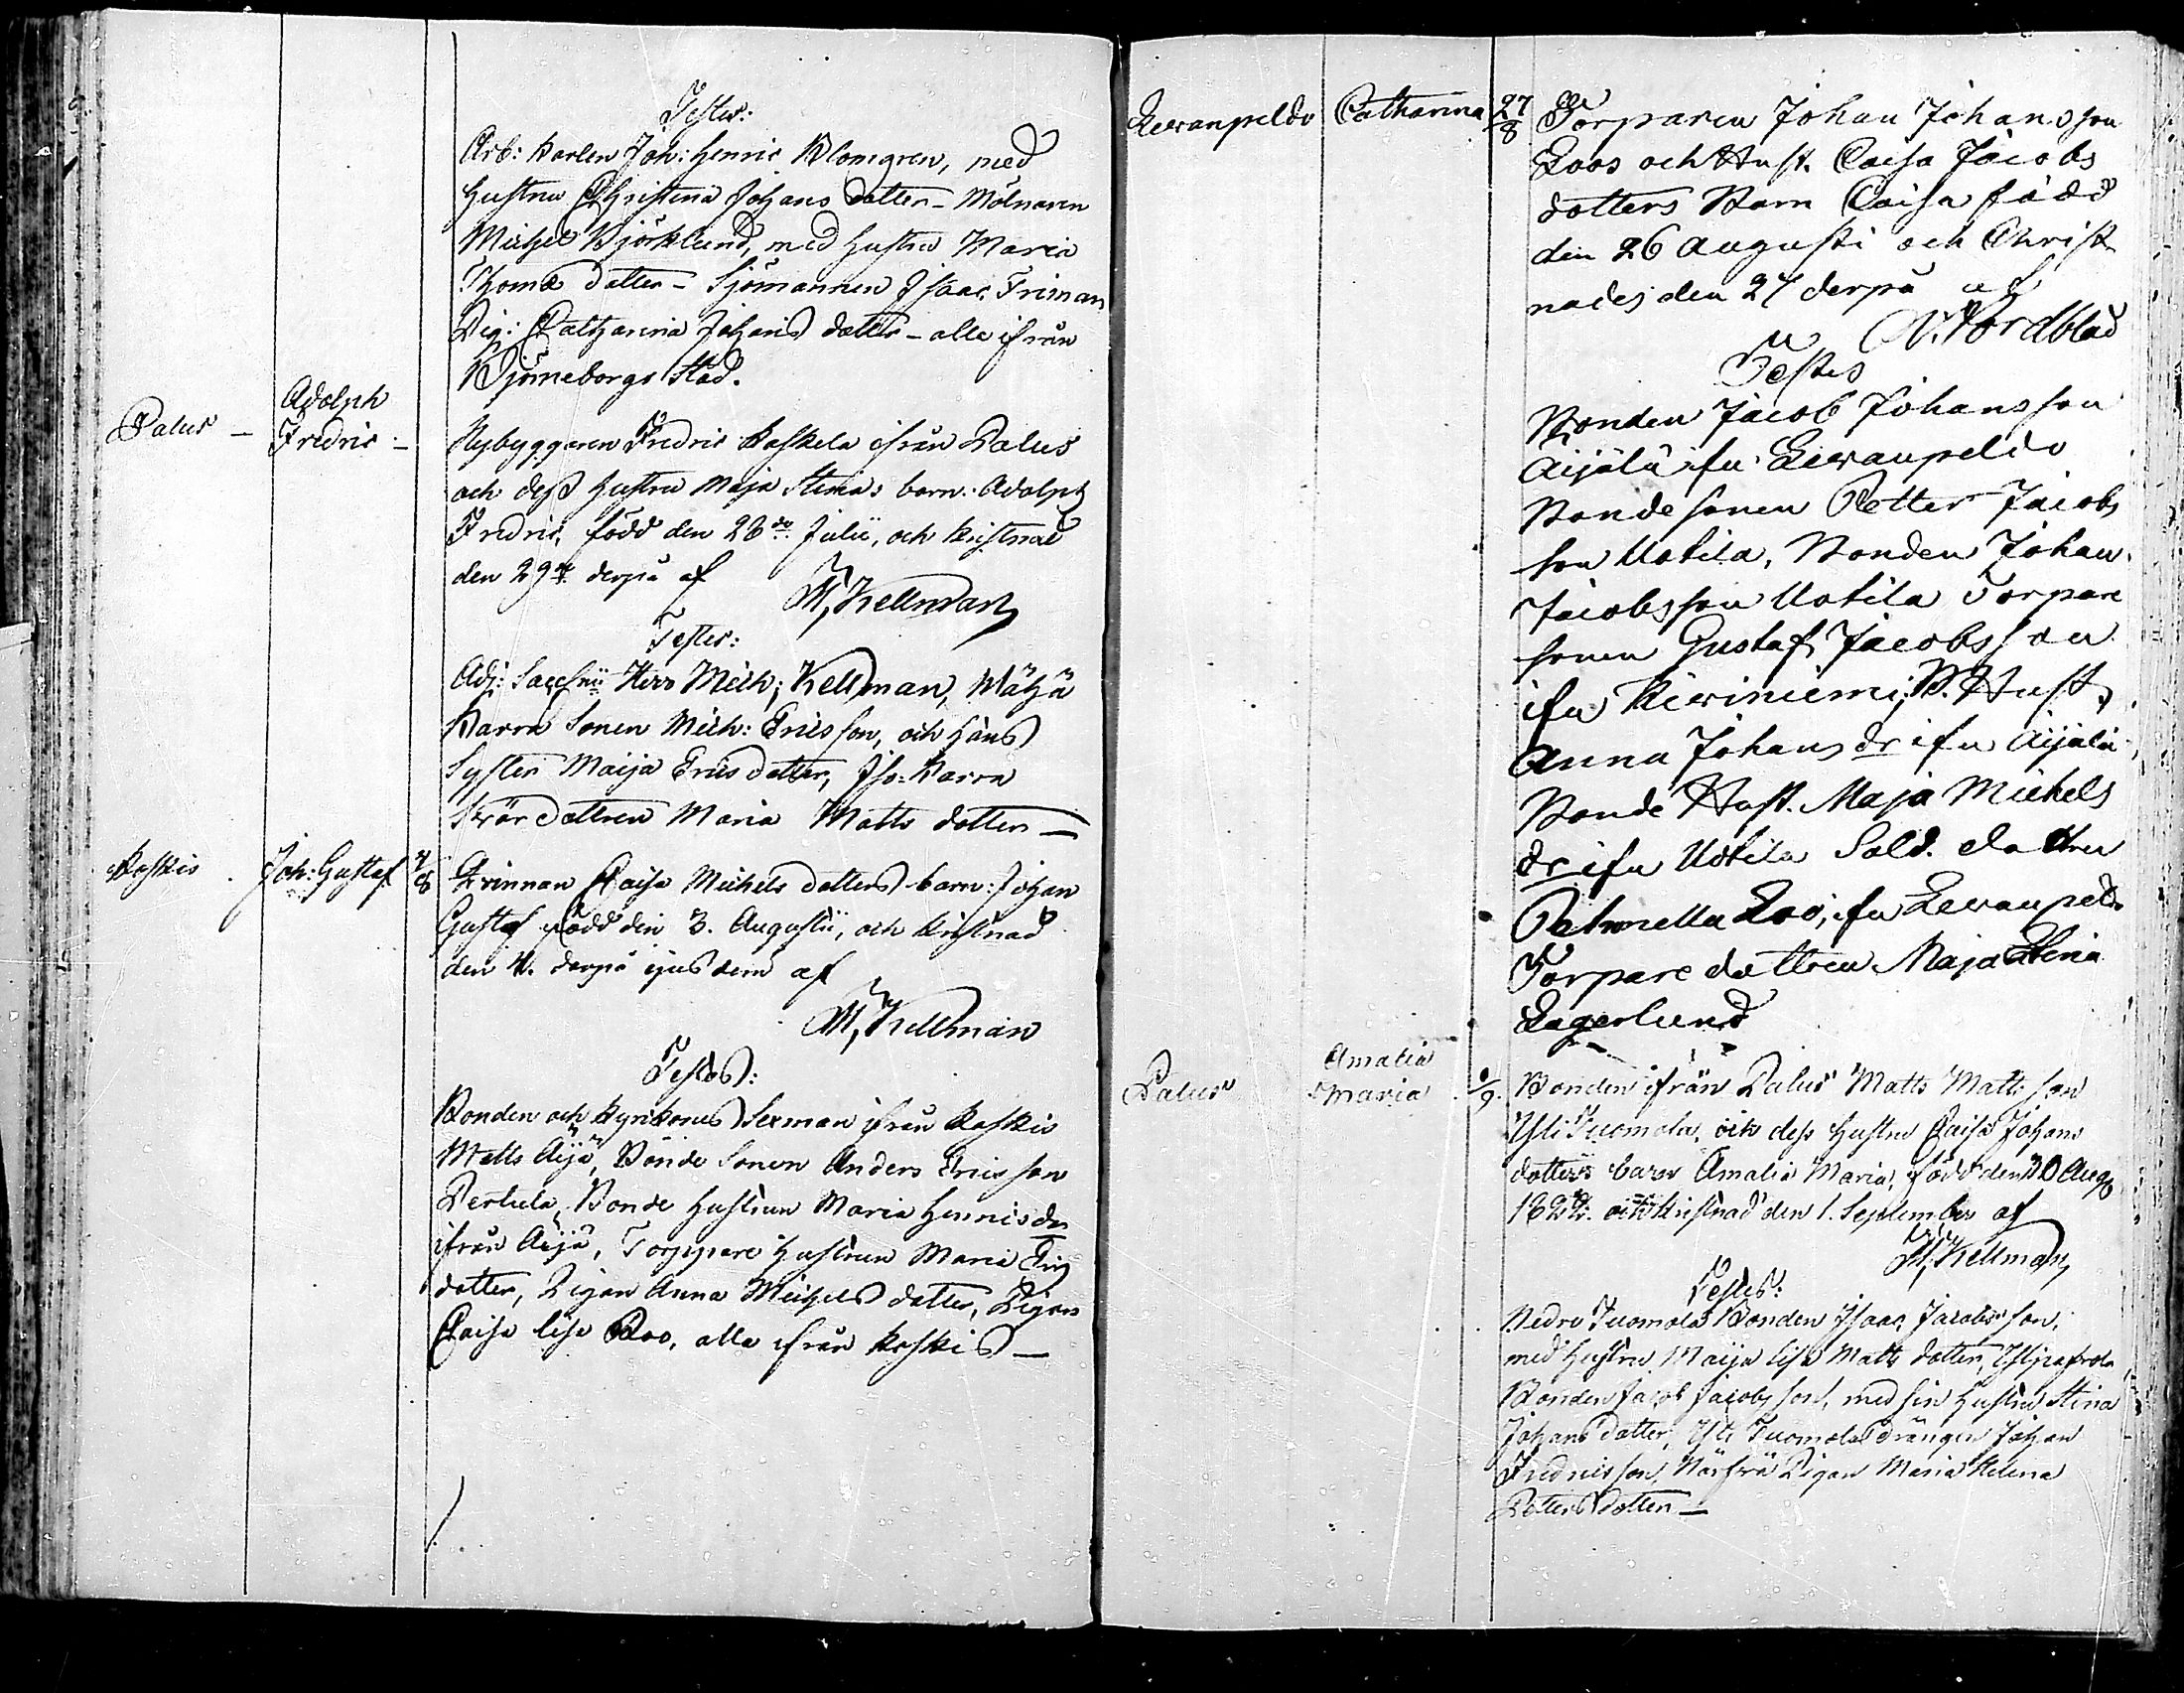 Testes:
Arb: Karlen Joh: Henric Blomgren, med
hustru Christina Johans dotter - Mölnaren
Michel Björklund, med hustru Maria
Thomæ dotter - Sjömannen Isaac Friman
Pig: Catharina Johans dotter - alle ifrån
Björneborgs Stad.
Palus - Adolph
Fredric - Nybyggaren Fredric Koskela ifrån Palus
och dess hustru Maja Stinas barn: Adolph
Fredric, född den 28de Julii, och kristnad
den 29de derpå af
M, Kellman
Testes:
Adj: Sacesnii Herr Mich; Kellman, Wähä
Karra Sonen Mich: Ericsson, och hans
Syster Maija Ericsdotter, Iso-Karra
Svär dottren Maria Matts dotter -
Koskis. Joh: Gustaf 4/8 Qvinnan Caisa Michels dotters barn: Johan
Gustaf född den 3. Augustii, och kristnad
den 4. derpå ejusdem af
M, Kellman
Testes:
Bonden och Kyrkones Sexman ifrån Koskis
Matts Äijä, Bonde Sonen Anders Ericsson
Pertula, Bonde hustrun Maria Henricsdr
ifrån Äijä, Torppare hustrun Maria Erics
dotter, Pigan Anna Michels dotter, Pigan
Caisa Lisa Roo, alla ifrån Koskis -
Lewanpeldo Catharina 27/8 Torparen Johan Johansson
Loos och Hust. Caisa Jacobs
dotters Barn Caisa född
den 26 Augusti och Christ
nades den 27 derpå af
N. Nordblad
Testes
Bonden Jacob Johansson
Äijälä ifn Lewanpeldo
Bondesonen Petter Jacobs
son Uotila, Bonden Johan
Jacobsson Uotila Torpare
sonen Gustaf Jacobsson
ifn Kiviniemi; B. Hust.
Anna Johansdr ifn Äijälä,
Bonde Hust. Maja Michels
dr ifn Uotila Sold. dottren
Petronella Loo, ifn Lewanpeldo
Torpare dottren Maja Stina
Lagerlund
Palus Amalia
Maria 1/9. Bonden ifrån Palus Matts Mattsson
Yli Tuomola, och dess hustru Caisa Johans
dotters barn Amalia Maria, född den 30 Aug.
182. och kristnad den 1. September af
M, Kellman
Testes:
Nedre Tuomola Bonden Isaac Jacobsson,
med hustru Maija Lisa Matts dotter,
Bonden Jacob Jacobsson, med sin hustru Stina
Johans dotter, Yli Tuomola drängen Johan
Fredricsson, Pigan Maria Helena
Petters dotter -